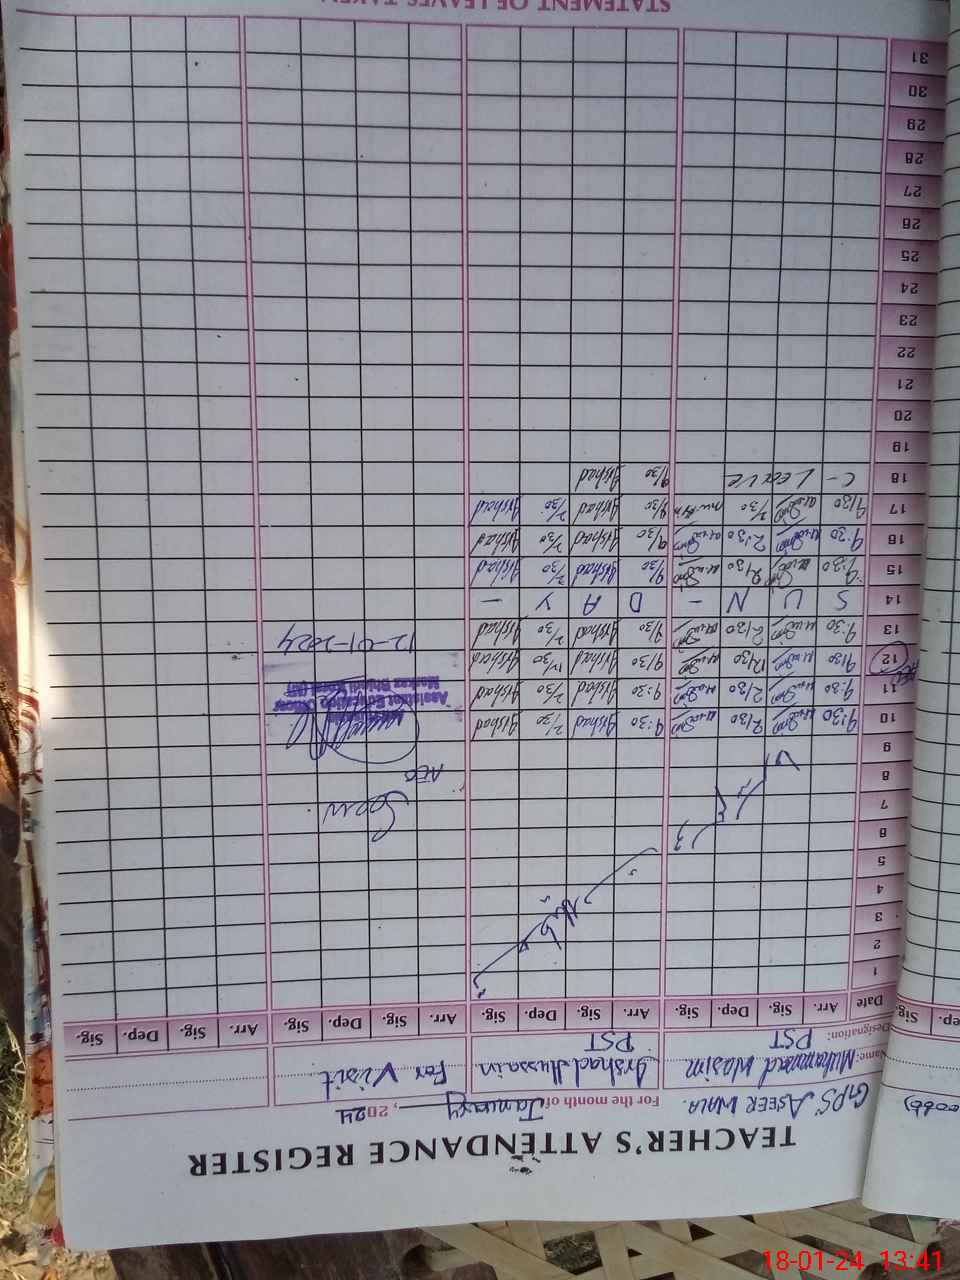 TEACHER'S ATTENDANCE REGISTER
GPS ASEER WALA. For the month of January, 2024
Name: Muhammad Wasim Irshad Hussain For Visit
Designation: PST PST
Date Arr. Sig. Dep. Sig. Arr. Sig. Dep. Sig. Arr. Sig. Dep. Sig. Arr. Sig. Dep. Sig.
1
2
3
4
5
6
7
8 AEO
9
10 9:30 2/30 9:30 Arshad 2/30 Arshad
11 9:30 2/30 9:30 Arshad 2/30 Arshad
12 9/30 12/30 9/30 Arshad 12/30 Arshad
13 9:30 2/30 9/30 Arshad 2/30 Arshad 12-01-2024
14 S U N - D A Y -
15 9:30 2/30 9/30 Arshad 2/30 Arshad
16 9:30 2:30 9/30 Arshad 2/30 Arshad
17 9/30 2/30 9/30 Arshad 2/30 Arshad
18 C- Leave 9/30 Arshad
19
20
21
22
23
24
25
26
27
28
29
30
31
STATEMENT OF LEAVES TAKEN
18-01-24 13:41